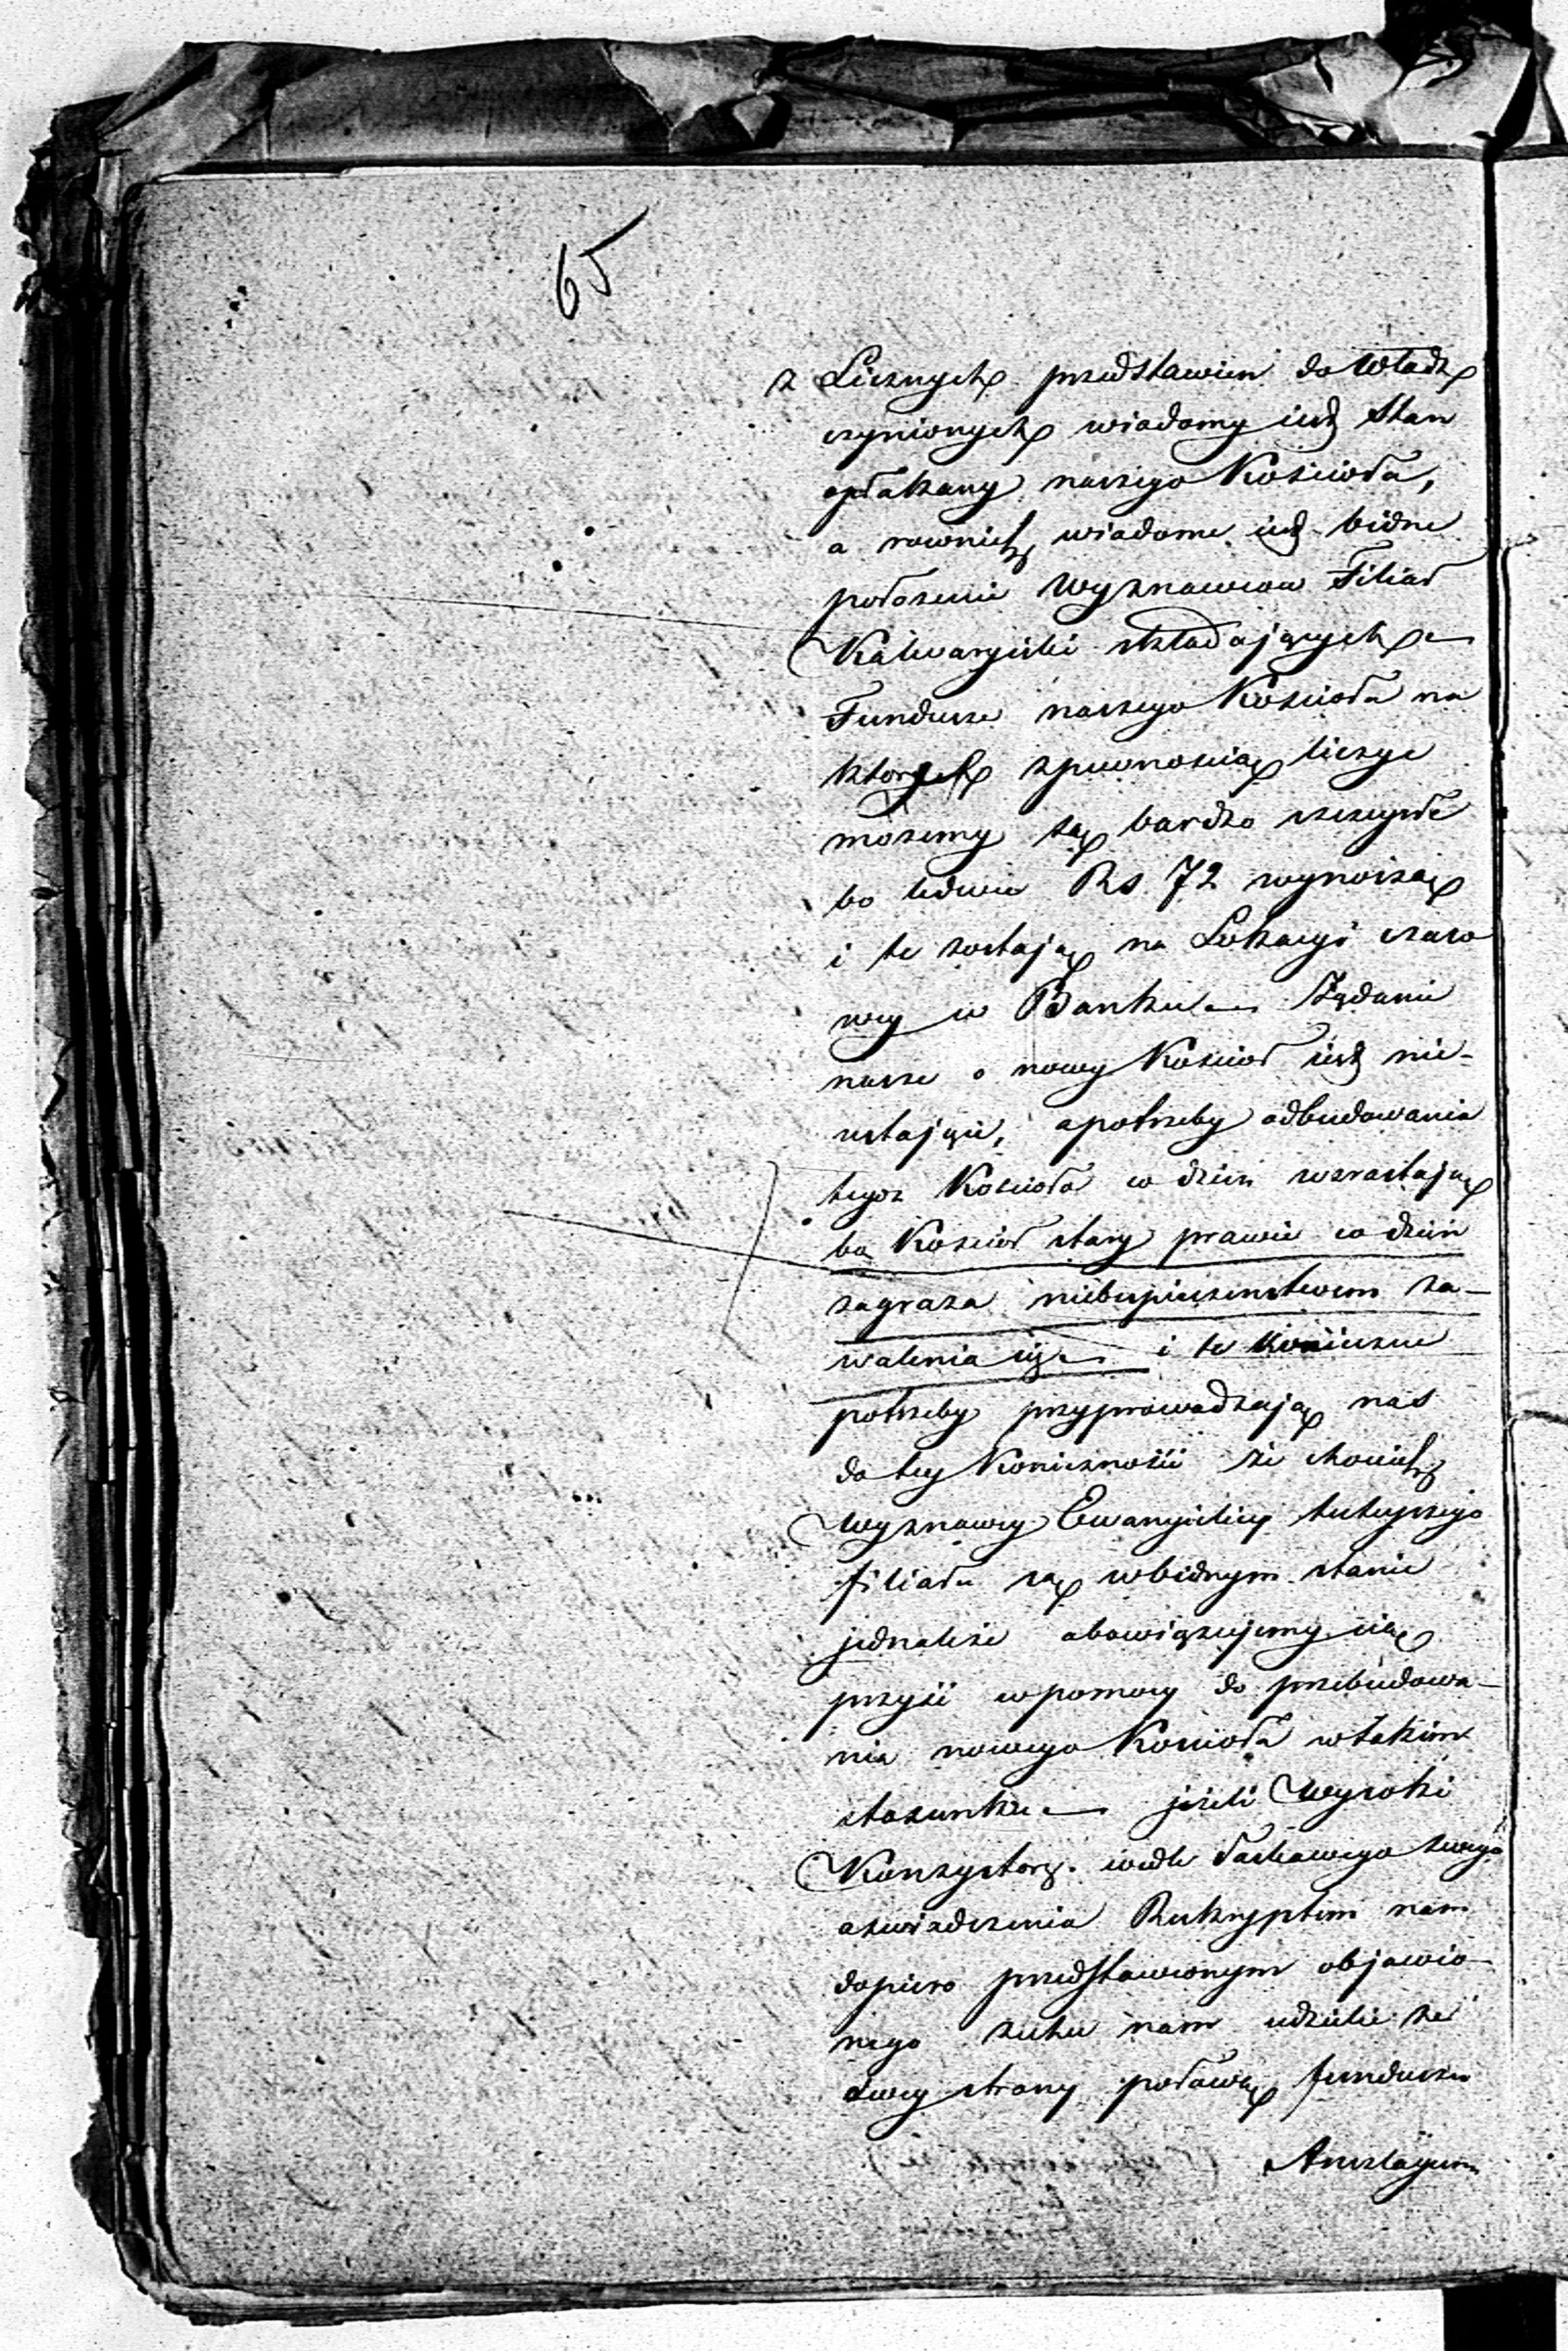 65
z Licznych przedstawien do Władz
czynionych wiadomy iest Stan
opłakany naszego Kościoła,
a rownież wiadome iest biedne
położenie Wyznawcow Filiał
Kalwaryiski składających
Fundusze naszego Kościoła na
ktorych zpewnoscią liczyc
możemy są bardzo szczupłe
bo ledwie Rs. 72 wynoszą
i te zostają na Lokacyi czaso
wey w Banku Żądanie
nasze o nowy Kościoł iest nie-
ustające, apotrzeby odbudowania
tegoz Kościoła co dzień wzrastają
bo Kościoł stary prawie co dzień
zagraża niebespieczenstwem za-
walenia się i te konieczne
potrzeby przyprowadzają nas
do tey Konicznosci że chociesz
Wyznawcy Ewangieliccy tuteyszego
filiału są wbiednym stanie
jednakże obowiązujemy się
przyiść wpomocy do przebudowa-
nia nowego Kościoła wtakim
stosunku jeżeli Wysoki
Konzystorz wedle Łaskawego swego
oswiadczenia Reskryptem nam
dopiero przedstawionym objawio
nego zechce nam udzielić ze
swey strony połowę funduszu
Anszlagiem